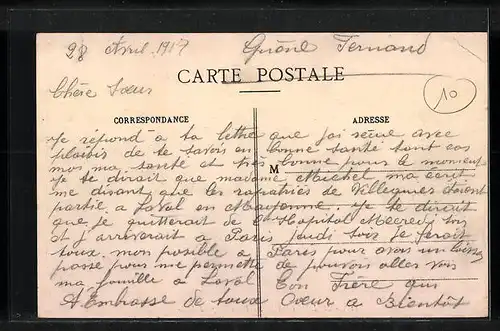 28 Avril 1917 Guéné Fernand
CARTE POSTALE
10
Chère Sœur
CORRESPONDANCE ADRESSE
M
Je répond a ta lettre que j'ai reçue avec
plaisir de te savoir en bonne santé tout cas
moi ma santé et très bonne pour le moment
Je te dirait que madame Michel ma écrit
me disant que les rapatriés de étaient
partie a Laval en Mayenne. Je te dirait
que je quitterait de l'Hopital Mecredi soir
et j'arriverait a Paris jeudi soir je ferait
tous mon possible a Paris pour avoir un laissez
passé pour me permettre de pouvoir aller voir
ma famille a Laval Ton Frère qui
t'Embrasse de tous Coeur a Bientôt